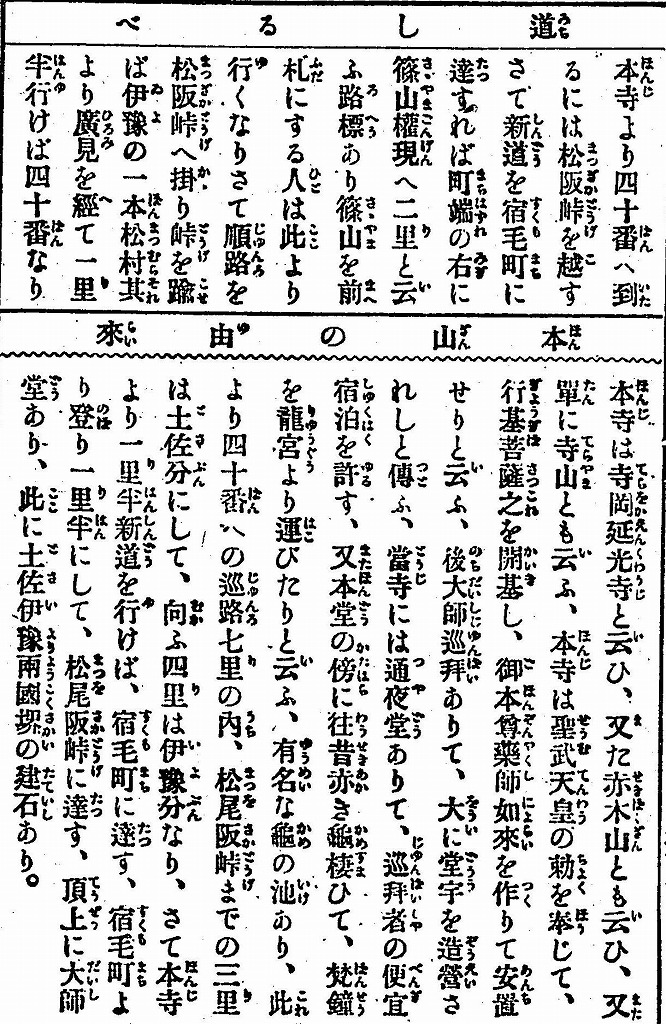 道しるべ
本寺より四十番へ到
るには松阪峠を越す
さて新道を宿毛町に
達すれば町端の右に
篠山權現へ二里と云
ふ路標あり篠山を前
札にする人は此より
行くなりさて順路を
松阪峠へ掛り峠を踰
ば伊豫の一本松村其
より廣見を經て一里
半行けば四十番なり
本山の由來
本寺は寺岡延光寺と云ひ、又た赤木山とも云ひ、又
單に寺山とも云ふ、本寺は聖武天皇の勅を奉じて、
行基菩薩之を開基し、御本尊藥師如來を作りて安置
せりと云ふ、後大師巡拜ありて、大に堂宇を造營さ
れしと傳ふ、當寺には通夜堂ありて、巡拜者の便宜
宿泊を許す、又本堂の傍に往昔赤き龜棲ひて、梵鐘
を龍宮より運びたりと云ふ、有名な龜の池あり、此
より四十番への巡路七里の內、松尾阪峠までの三里
は土佐分にして、向ふ四里は伊豫分なり、さて本寺
より一里半新道を行けば、宿毛町に達す、宿毛町よ
り登り一里半にして、松尾阪峠に達す、頂上に大師
堂あり、此に土佐伊豫兩國堺の建石あり。